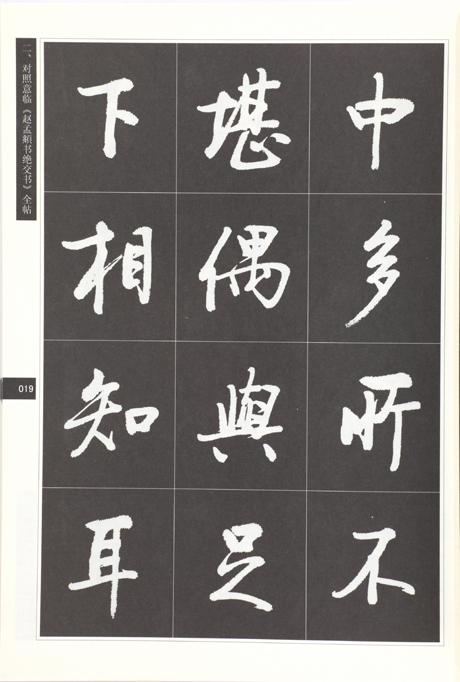 二、对照意临《赵孟頫书绝交书》全帖
中多所不
堪偶與足
下相知耳
019